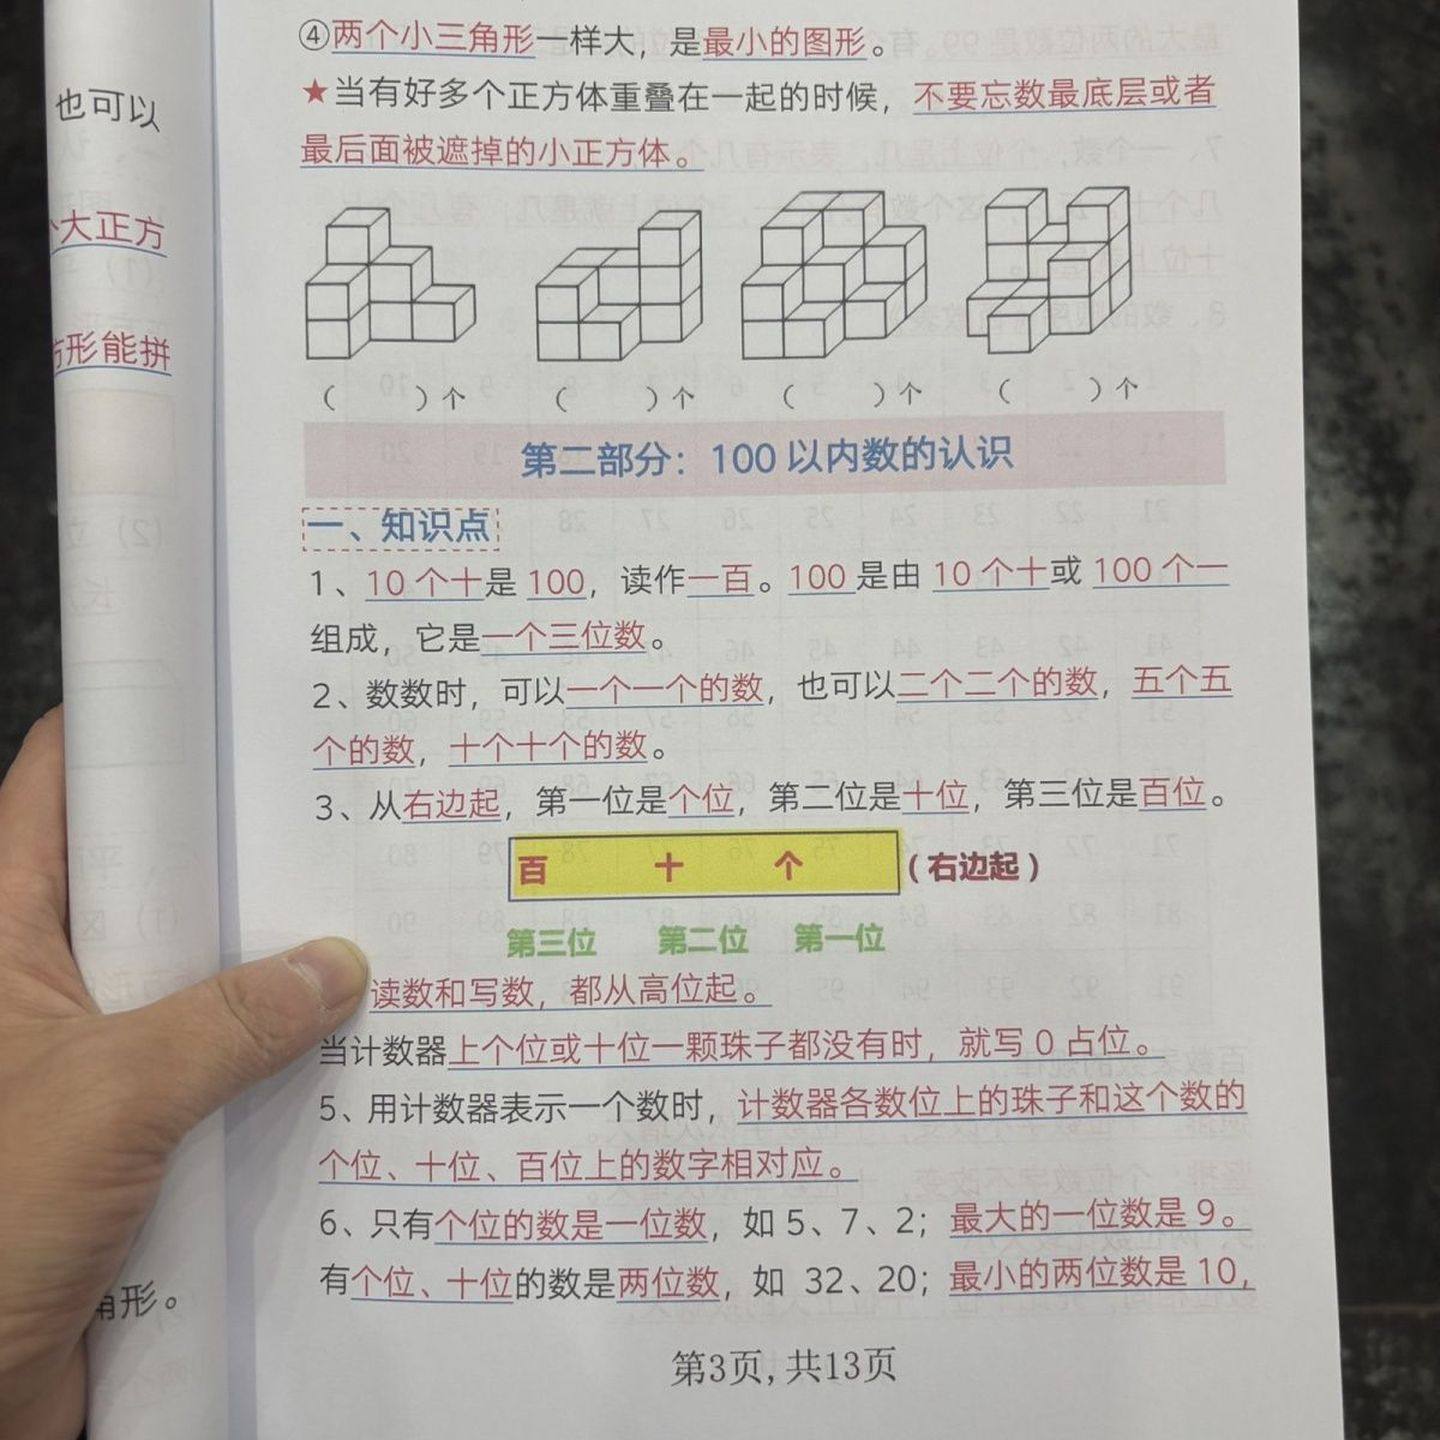 ④两个小三角形一样大，是最小的图形。
★当有好多个正方体重叠在一起的时候，不要忘数最底层或者
最后面被遮掉的小正方体。
（ ）个 （ ）个 （ ）个 （ ）个
第二部分：100 以内数的认识
一、知识点
1、10 个十是 100，读作一百。100 是由 10 个十或 100 个一
组成，它是一个三位数。
2、数数时，可以一个一个的数，也可以二个二个的数，五个五
个的数，十个十个的数。
3、从右边起，第一位是个位，第二位是十位，第三位是百位。
百 十 个（右边起）
第三位 第二位 第一位
读数和写数，都从高位起。
当计数器上个位或十位一颗珠子都没有时，就写 0 占位。
5、用计数器表示一个数时，计数器各数位上的珠子和这个数的
个位、十位、百位上的数字相对应。
6、只有个位的数是一位数，如 5、7、2；最大的一位数是 9。
有个位、十位的数是两位数，如 32、20；最小的两位数是 10，
第3页，共13页
也可以
大正方
形能拼
角形。